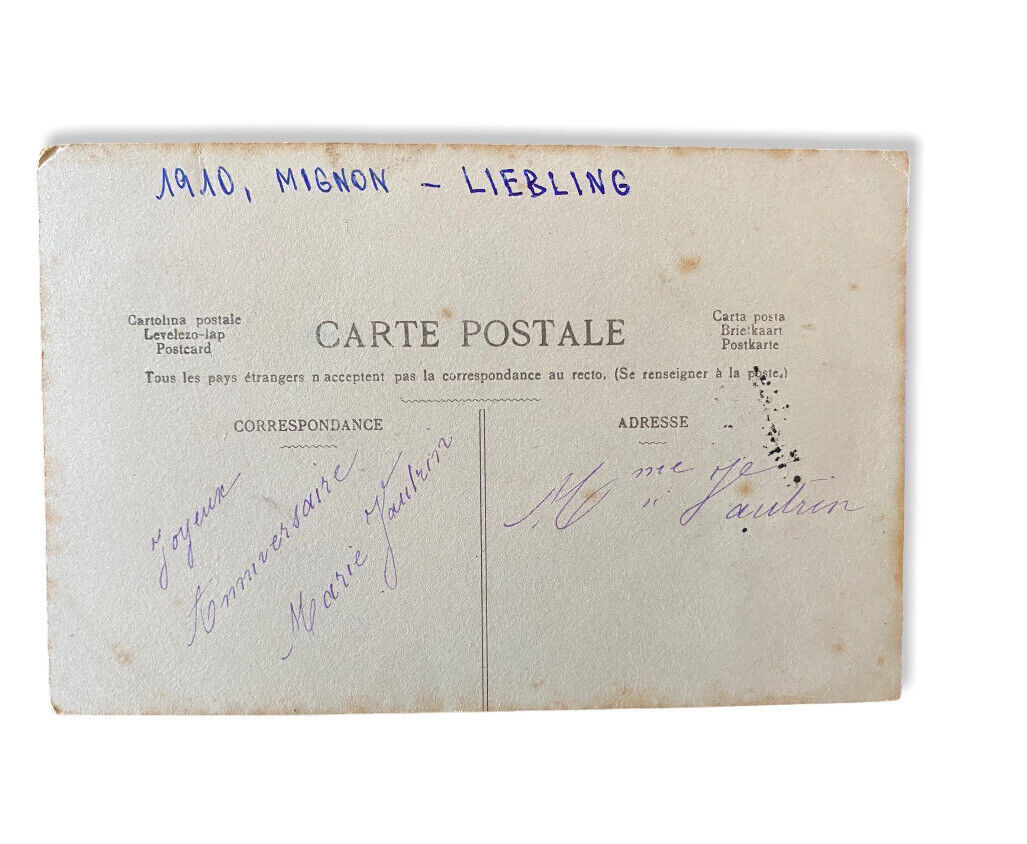 1910, MIGNON – LIEBLING
Cartolina postale
Levelezo-lap
Postcard
CARTE POSTALE
Carta posta
Briefkaart
Postkarte
Tous les pays étrangers n'acceptent pas la correspondance au recto. (Se renseigner à la poste.)
CORRESPONDANCE
Joyeux
Anniversaire
Marie Vautrin
ADRESSE
Mme
Vautrin